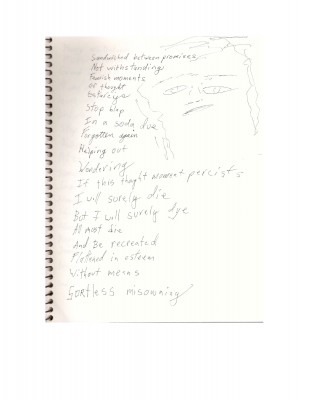 Sandwiched between promises
Not withstanding
Feverish moments
of thought
Stop
In a soda due
Forgotten again
Helping out
Wondering
If this thaght moment percists
I will surely die
But I will surely dye
As must die
And Be recreated
in esteem
Without means
misowning